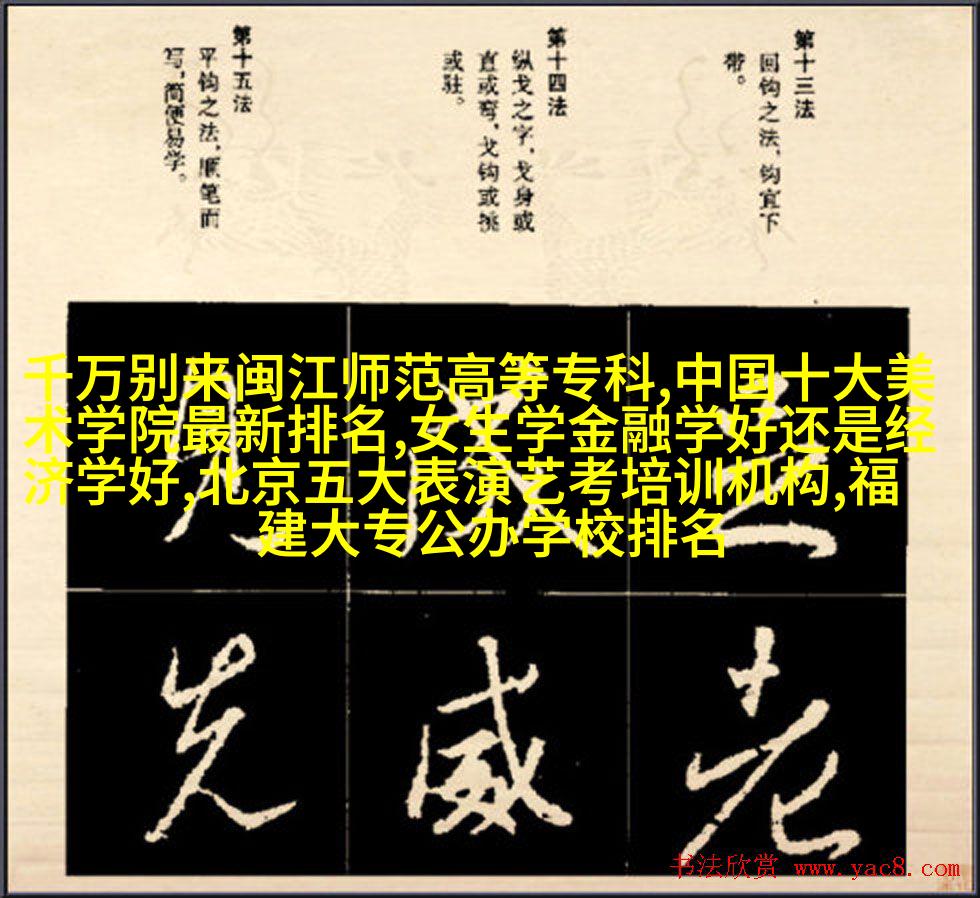 第十三法
回钩之法,钩宜下
带。
第十四法
纵戈之字,戈身或
直或弯,戈钩或挑
或驻。
第十五法
平钩之法,顺笔而
写,简便易学。
千万别来闽江师范高等专科,中国十大美
术学院最新排名,女生学金融学好还是经
济学好,北京五大表演艺考培训机构,福
建大专公办学校排名
老
威
先
书法欣赏 www.yac8.com